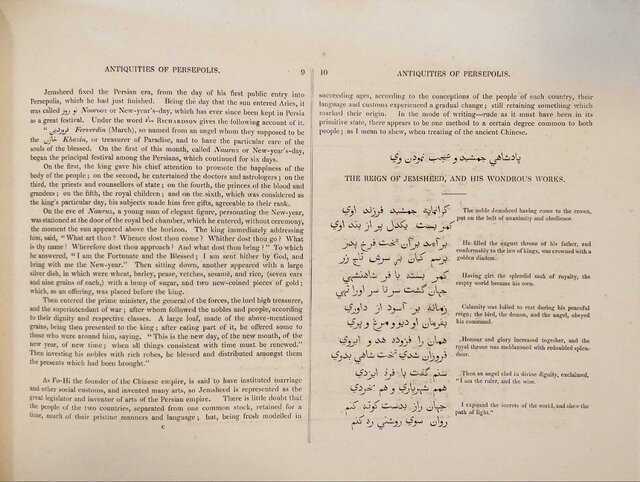 ANTIQUITIES OF PERSEPOLIS. 9
Jemsheed fixed the Persian era, from the day of his first public entry into
Persepolis, which he had just finished. Being the day that the sun entered Aries, it
was called نو روز Nooroos or New-year's-day, which has ever since been kept in Persia
as a great festival. Under the word ماه RICHARDSON gives the following account of it.
" فروردين Ferverdin (March), so named from an angel whom they supposed to be
the خازن Khazin, or treasurer of Paradise, and to have the particular care of the
souls of the blessed. On the first of this month, called Nauruz or New-year's-day,
began the principal festival among the Persians, which continued for six days.
On the first, the king gave his chief attention to promote the happiness of the
body of the people; on the second, he entertained the doctors and astrologers; on the
third, the priests and counsellors of state; on the fourth, the princes of the blood and
grandees; on the fifth, the royal children; and on the sixth, which was considered as
the king's particular day, his subjects made him free gifts, agreeable to their rank.
On the eve of Nauruz, a young man of elegant figure, personating the New-year,
was stationed at the door of the royal bed chamber, which he entered, without ceremony,
the moment the sun appeared above the horizon. The king immediately addressing
him, said, "What art thou? Whence dost thou come? Whither dost thou go? What
is thy name? Wherefore dost thou approach? And what dost thou bring?" To which
he answered, "I am the Fortunate and the Blessed; I am sent hither by God, and
bring with me the New-year." Then sitting down, another appeared with a large
silver dish, in which were wheat, barley, pease, vetches, sesame, and rice, (seven ears
and nine grains of each,) with a lump of sugar, and two new-coined pieces of gold;
which, as an offering, was placed before the king.
Then entered the prime minister, the general of the forces, the lord high treasurer,
and the superintendant of war; after whom followed the nobles and people, according
to their dignity and respective classes. A large loaf, made of the above-mentioned
grains, being then presented to the king; after eating part of it, he offered some to
those who were around him, saying, "This is the new day, of the new month, of the
new year, of new time; when all things consistent with time must be renewed."
Then investing his nobles with rich robes, he blessed and distributed amongst them
the presents which had been brought."
As Fo-Hi the founder of the Chinese empire, is said to have instituted marriage
and other social customs, and invented many arts, so Jemsheed is represented as the
great legislator and inventor of arts of the Persian empire. There is little doubt that
the people of the two countries, separated from one common stock, retained for a
time, much of their pristine manners and language; but, being fresh modelled in
C
10 ANTIQUITIES OF PERSEPOLIS.
succeeding ages, according to the conceptions of the people of each country, their
language and customs experienced a gradual change; still retaining something which
marked their origin. In the mode of writing—rude as it must have been in its
primitive state, there appears to be one method to a certain degree common to both
people; as I mean to shew, when treating of the ancient Chinese.
پادشاهي جمشيد و عجب نمودن وي
THE REIGN OF JEMSHEED, AND HIS WONDROUS WORKS.
گرانمايه جمشيد فرزند اوي
كمر بست يكدل پر از پند اوي
The noble Jemsheed having come to the crown,
put on the belt of unanimity and obedience.
برآمد برآن تخت فرخ پدر
برسم كيان بر سرش تاج زر
He filled the august throne of his father, and
conformably to the law of kings, was crowned with a
golden diadem.
كمر بسته با فر شاهنشهي
جهان گشت سر تا سر اورا رهي
Having girt the splendid sash of royalty, the
empty world became his own.
زمانه بر آسود از داوري
بفرمان او ديو و مرغ و پري
Calamity was lulled to rest during his peaceful
reign; the bird, the demon, and the angel, obeyed
his command.
جهان را فزوده بدو آبروي
فروزان شدي تخت شاهي بدوي
Honour and glory increased together, and the
royal throne was emblazoned with redoubled splen-
dour.
منم گفت با فره ايزدي
همم شهرياري و هم بخردي
Then an angel clad in divine dignity, exclaimed,
"I am the ruler, and the wise.
جهان راز بدست كوته كنم
روان سوي روشني ره كنم
I expound the secrets of the world, and shew the
path of light."